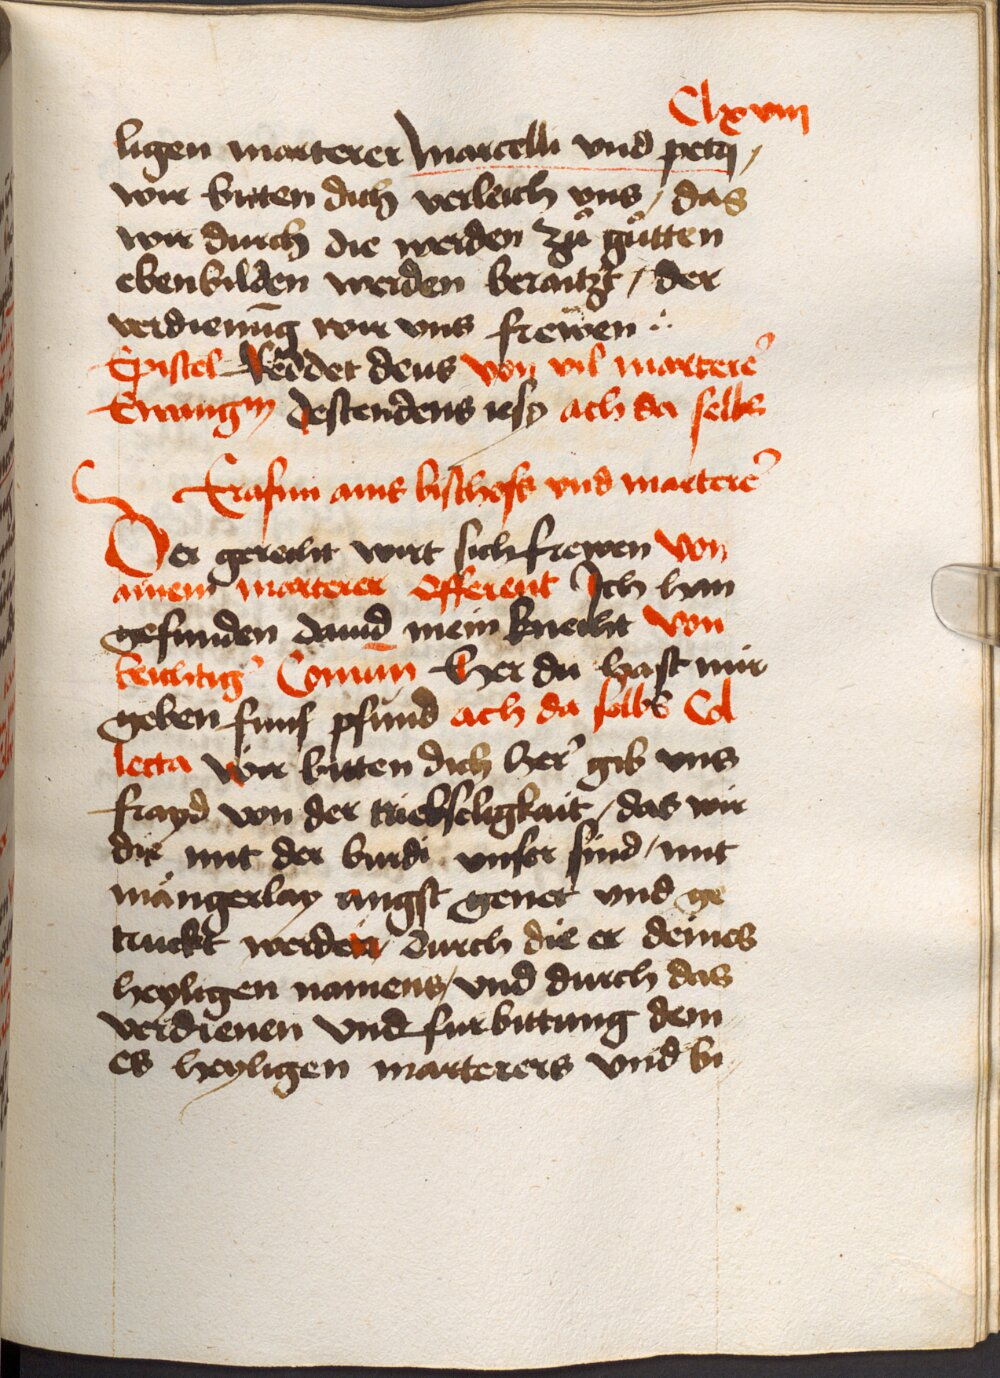 Clxviii
ligen marterer Marcelli und petri /
wir bitten dich verleich vns / das
wir durch die werden zů gůtten
ebenbilden werden beraitzt / der
verdienūg wir vns frewen :
Epistel Reddet deus von vil martere᷑
Ewangm Descendens iesꝫ ach da selbs
S Erasmi ains bischofs vnd martere᷑
Der gerecht wirt sich frewen von
ainem marterer Offerent Ich han
gefunden dauid mein knecht von
beichtig᷑ Comūn Her du hast mir
geben funf pfund ach da selbs Col
lecta Wir bitten dich her᷑ gib vns
frayd von der triebseligkait / das wir
die mit der burdi vnser sind / mit
mängerlay angst genet vnd ge
truckt werden / durch die er deines
heyligen namens / vnd durch das
verdienen vnd furbittung dein
es heyligen marterers vnd bi